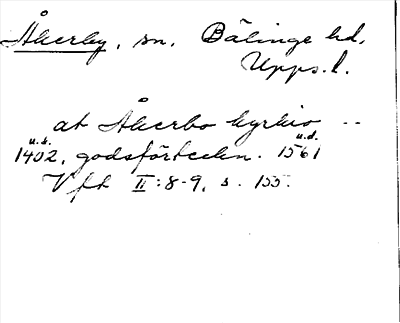 Åkerby, sn. Bälinge hd.
Upps. l.
at Åkerbo kyrkio --
u.d. u.d.
1402, godsförteckn. 1561
Vft II:8-9, s. 155.